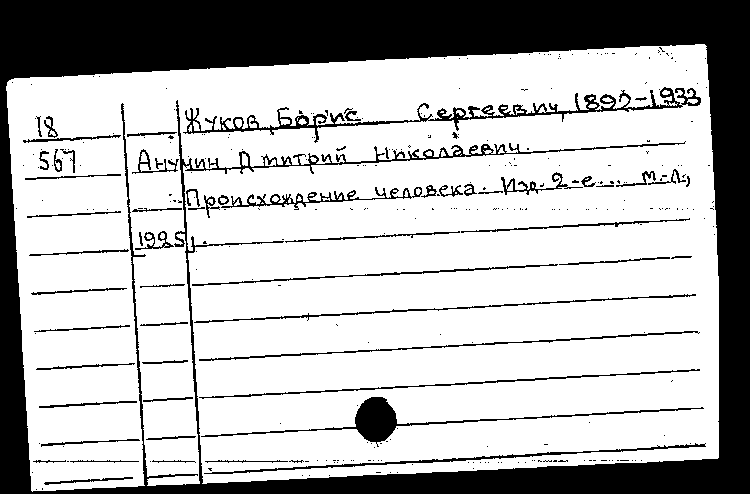 18 Жуков, Борис Сергеевич, 1892-1933
567 Анучин, Дмитрий Николаевич.
Происхождение человека. Изд. 2-е... М.-Л.,
[1925].